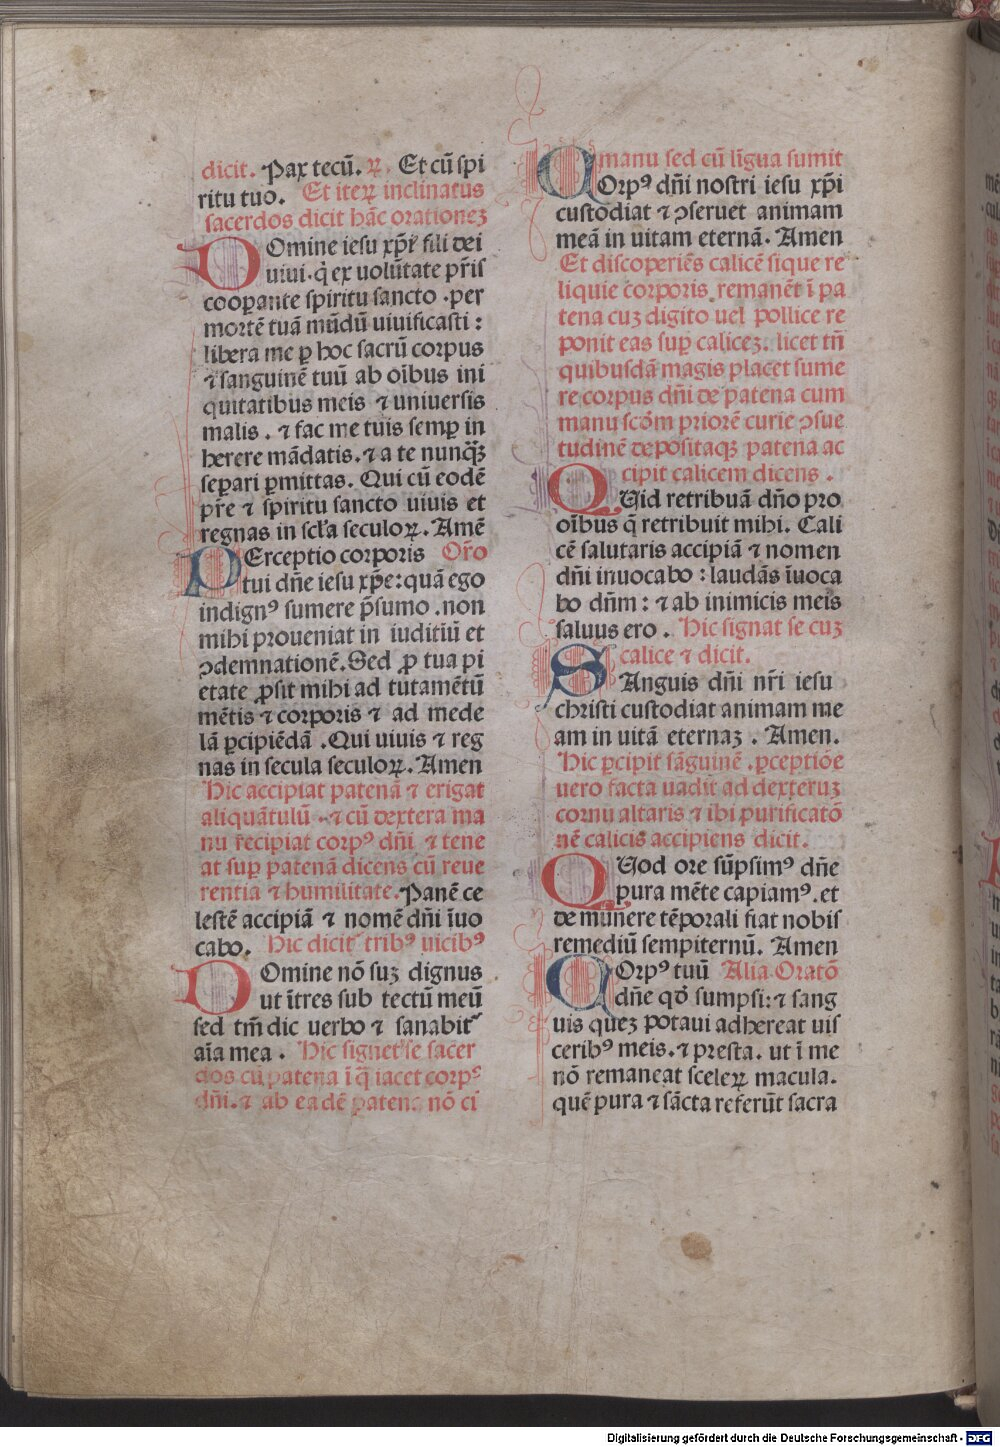 dicit. Pax tecū. ꝶ. Et cū spi
ritu tuo. Et iterꝝ inclinatus
sacerdos dicit hāc orationeꝫ
DOmine iesu xp̄e fili dei
uiui. q̇ ex uolūtate pr̄is
cooꝑante spiritu sancto .per
mortē tuā mūdū uiuificasti :
libera me ꝑ hoc sacrū corpus
⁊ sanguinē tuū ab oībus ini
quitatibus meis ⁊ uniuersis
malis . ⁊ fac me tuis semꝑ in
herere mādatis. ⁊ a te nunqꝫ
seꝑari ꝑmittas. Qui cū eodē
pr̄e ⁊ spiritu sancto uiuis et
regnas in scl̄a seculoꝝ. Amē
PErceptio corporis Or̄o
tui dn̄e iesu xp̄e: quā ego
indignꝰ sumere p̄sumo .non
mihi proueniat in iuditiū et
ↄdemnationē. Sed ꝓ tua pi
etate ꝓsit mihi ad tutamētū
mētis ⁊ corporis ⁊ ad mede
lā ꝑcipiēdā .Qui uiuis ⁊ reg
nas in secula seculoꝝ. Amen
Hic accipiat patenā ⁊ erigat
aliquātulū .⁊ cū dextera ma
nu recipiat corpꝰ dn̄i ⁊ tene
at suꝑ patenā dicens cū reue
rentia ⁊ humilitate. Panē ce
lestē accipiā ⁊ nomē dn̄i īuo
cabo. Hic dicit tribꝰ uicibꝰ
DOmine nō suꝫ dignus
ut ītres sub tectū meū
sed tm̄ dic uerbo ⁊ sanabit
aīa mea . Hic signet se sacer
dos cū patena ī q̄ iacet corpꝰ
dn̄i. ⁊ ab eadē patena nō cū
manu sed cū līgua sumit
COrpꝰ dn̄i nostri iesu xp̄i
custodiat ⁊ ↄseruet animam
meā in uitam eternā. Amen
Et discoperiēs calicē si que re
liquie corporis remanēt ī pa
tena cuꝫ digito uel pollice re
ponit eas suꝑ caliceꝫ. licet tn̄
quibusdā magis placet sume
re corpus dn̄i de patena cum
manu scd̄m priorē curie ↄsue
tudinē depositaqꝫ patena ac
cipit calicem dicens .
QUid retribuā dn̄o pro
oībus q̄ retribuit mihi. Cali
cē salutaris accipiā ⁊ nomen
dn̄i inuocabo : laudās īuoca
bo dn̄m : ⁊ ab inimicis meis
saluus ero . Hic signat se cuꝫ
calice ⁊ dicit.
SAnguis dn̄i nr̄i iesu
christi custodiat animam me
am in uitā eternaꝫ . Amen.
Hic ꝑcipit sāguinē .ꝑceptiōe
uero facta uadit ad dexteruꝫ
cornu altaris ⁊ ibi purificatō
nē calicis accipiens dicit.
QUod ore sūpsimꝰ dn̄e
pura mēte capiamꝰ. et
de munere tēporali fiat nobis
remediū sempiternū. Amen
COrpꝰ tuū Alia Oratō
dn̄e qd̄ sumpsi: ⁊ sang
uis queꝫ potaui adhereat uis
ceribꝰ meis. ⁊ presta. ut ī me
nō remaneat sceleꝝ macula.
quē pura ⁊ sācta referūt sacra
Digitalisierung gefördert durch die Deutsche Forschungsgemeinschaft - DFG